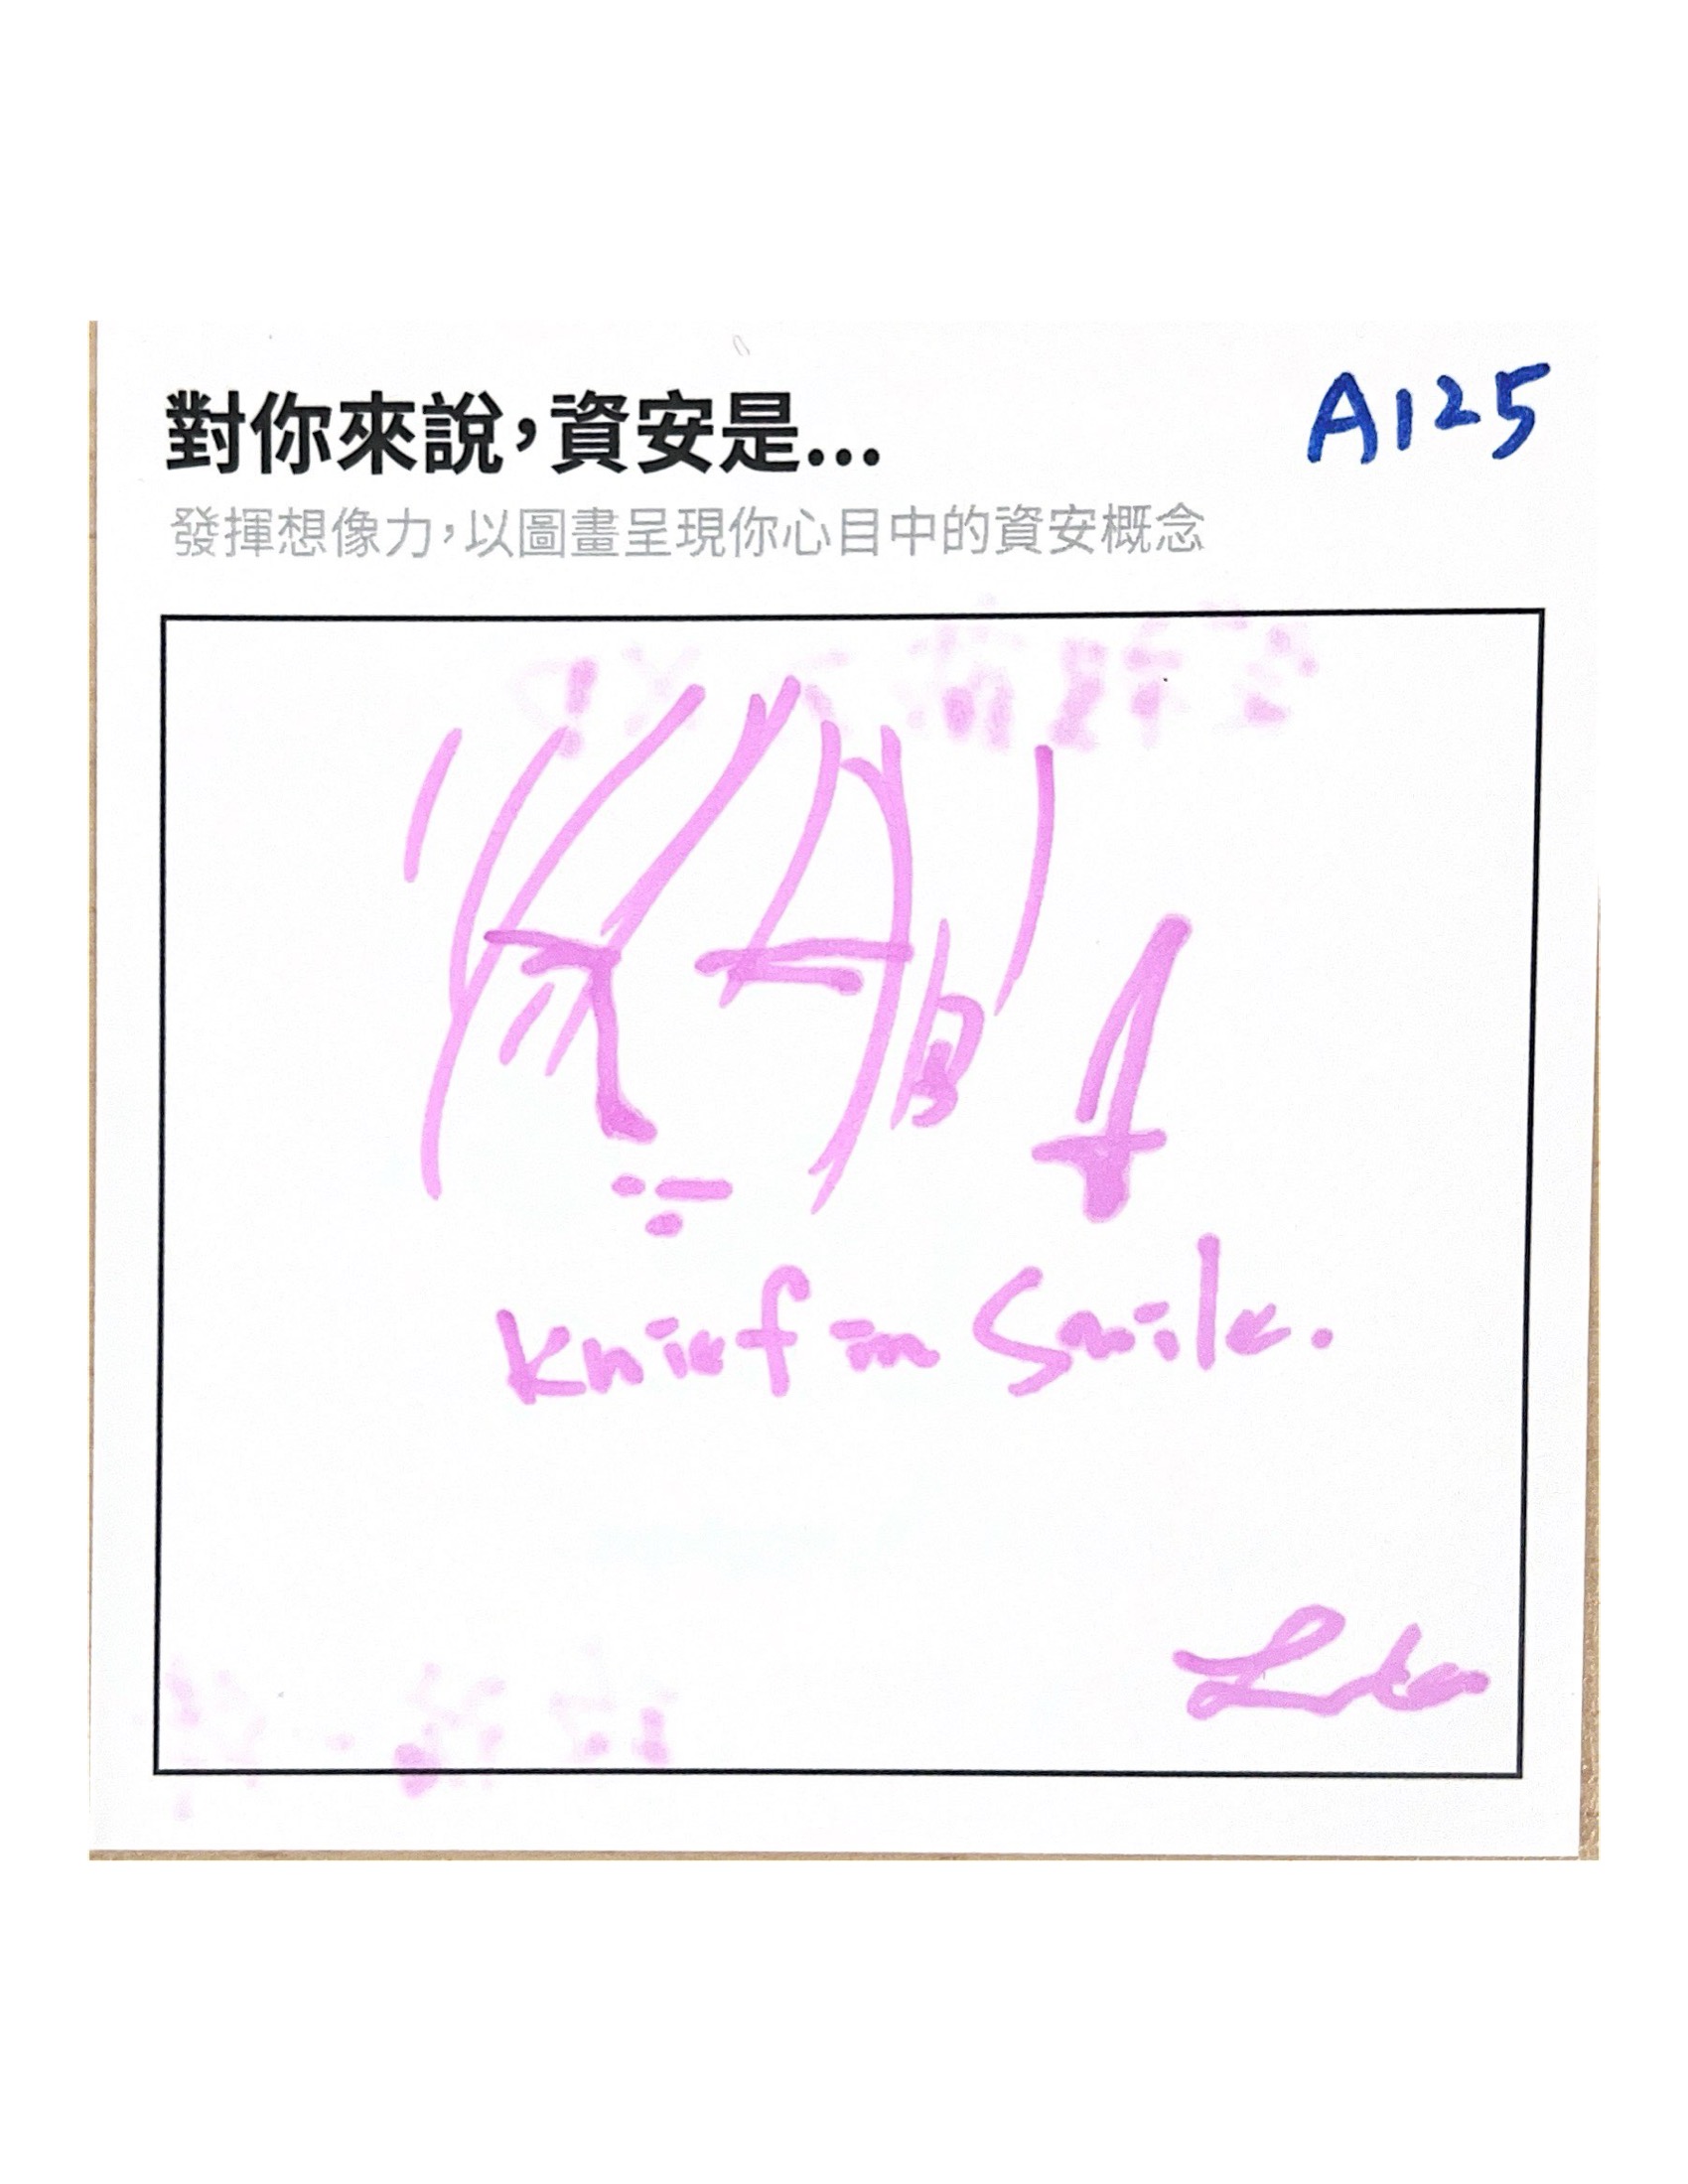 對你來說,資安是...
A125
發揮想像力,以圖畫呈現你心目中的資安概念
knief in Smile.